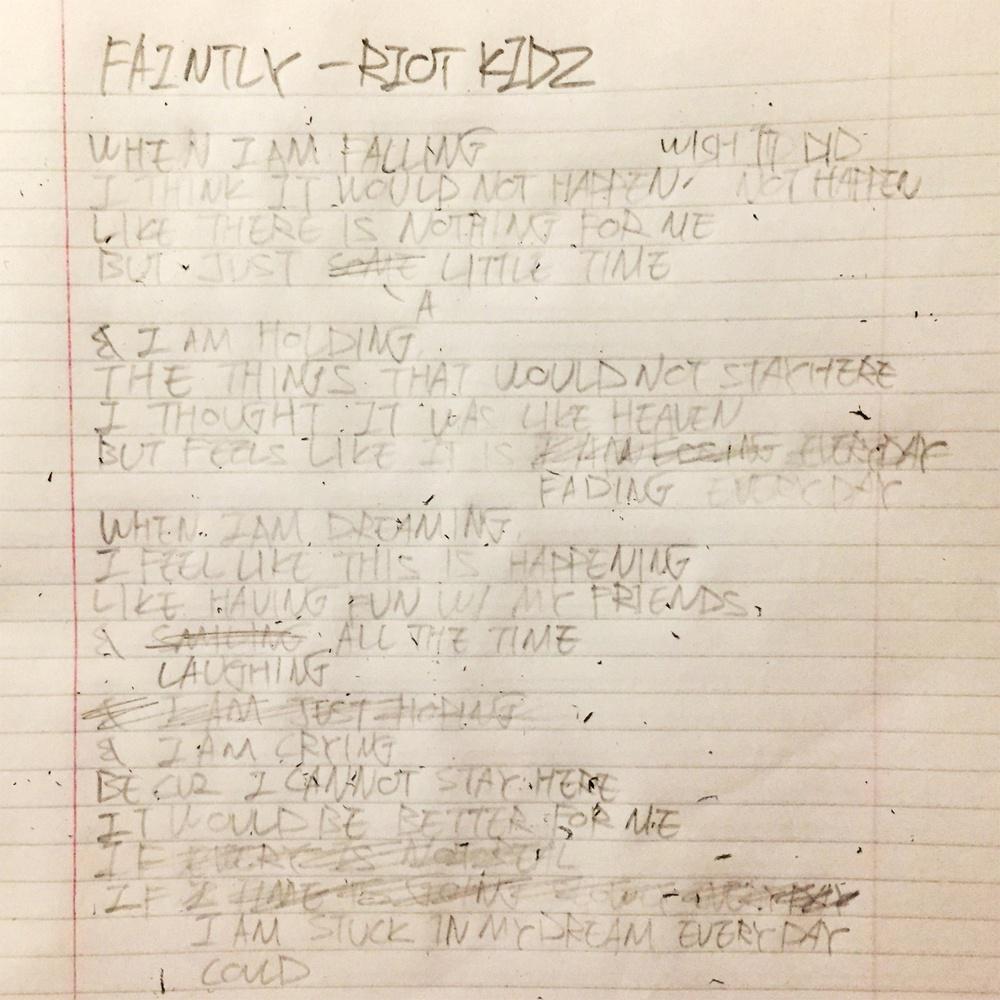 FAINTLY - RIOT KIDZ
WHEN I AM FALLING WISH IT DID
I THINK IT WOULD NOT HAPPEN. NOT HAPPEN
LIKE THERE IS NOTHING FOR ME
BUT JUST SOME LITTLE TIME
A
& I AM HOLDING
THE THINGS THAT WOULD NOT STAY HERE
I THOUGHT IT WAS LIKE HEAVEN
BUT FEELS LIKE IT IS I AM LOSING EVERYDAY
FADING EVERYDAY
WHEN I AM DREAMING
I FEEL LIKE THIS IS HAPPENING
LIKE HAVING FUN W/ MY FRIENDS
& SMILING ALL THE TIME
LAUGHING
& I AM JUST HOPING
& I AM CRYING
BECUZ I CANNOT STAY HERE
IT WOULD BE BETTER FOR ME
IF IS NOT REAL
IF I
I AM STUCK IN MY DREAM EVERYDAY
COULD